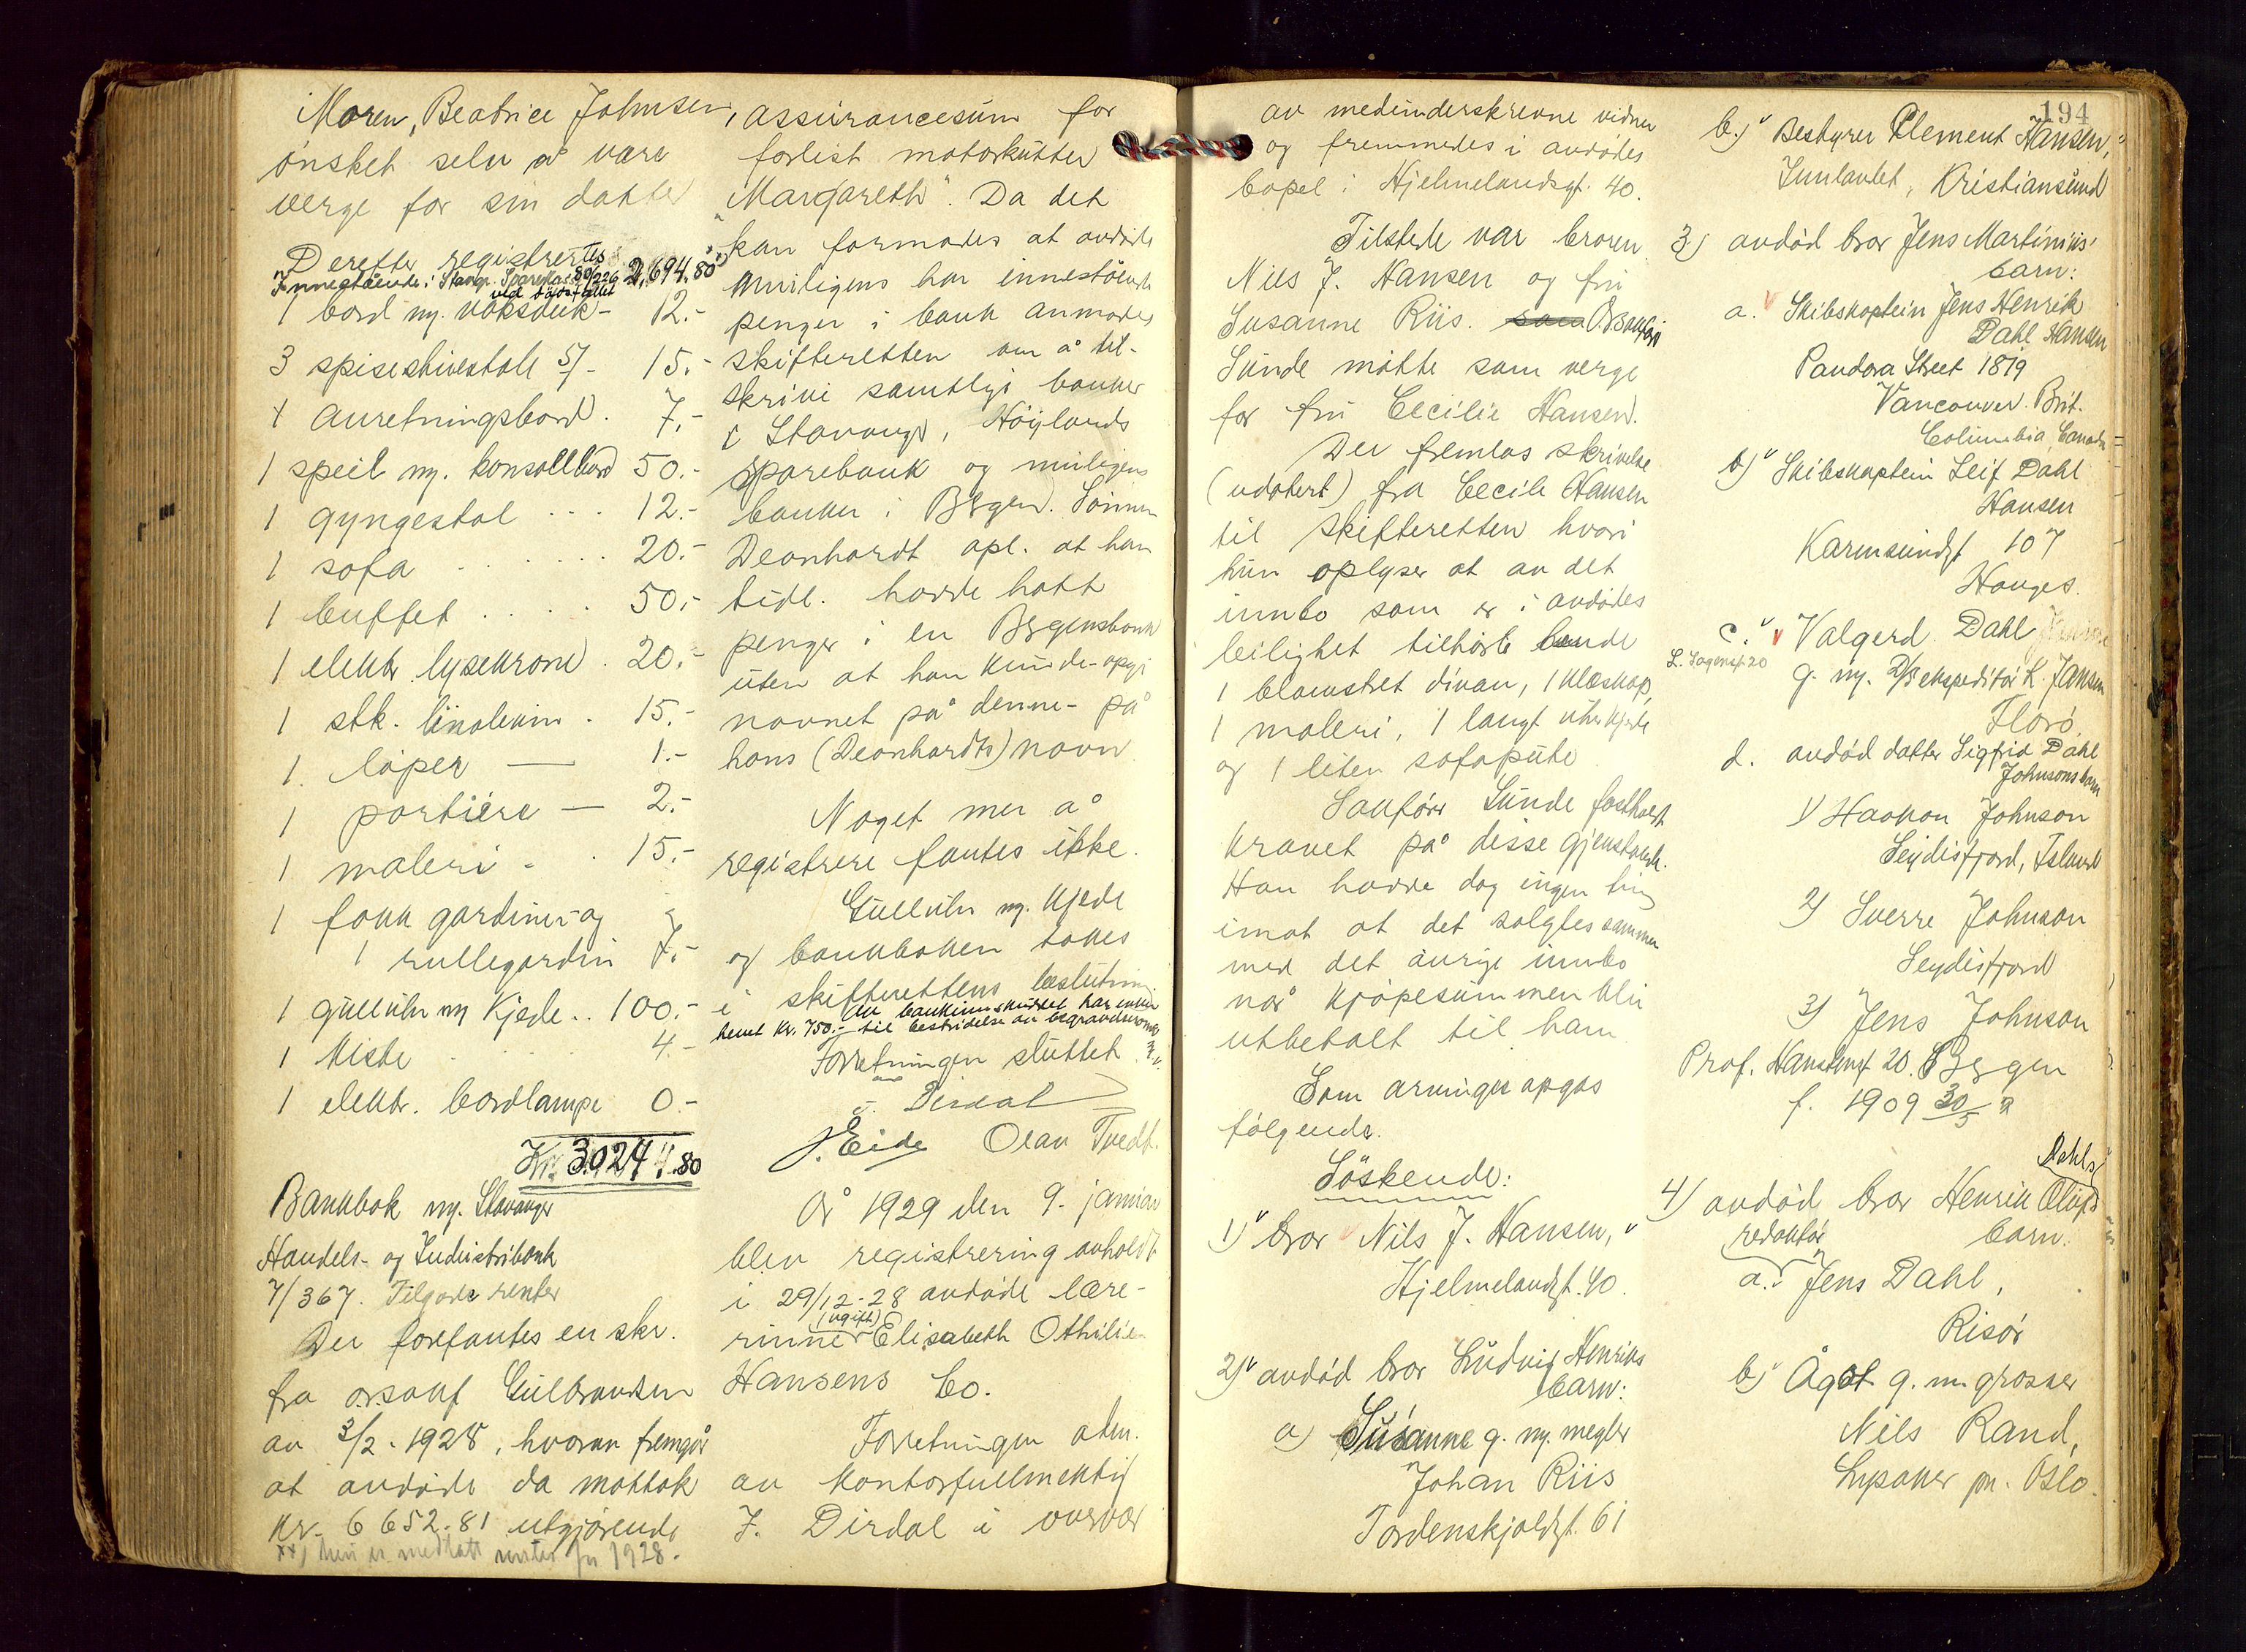 Moren, Beatrice Johnsen,
ønsket selv å være
verge for sin datter
Derefter registrertes
Innestående i Stavgr. Sparekasse 80/226 2,694.80
ved dødsfallet
1 bord m. voksduk - 12.-
3 spisestuestole 5/- 15.-
1 anretningsbord. 7.-
1 speil m. konsollbord 50.-
1 gyngestol ... 12.-
1 sofa ..... 20.-
1 buffet .... 50.-
1 elektr. lysekrone . 20.-
1 stk. linoleum . 15.-
1 løper — 1.-
1 portiére — 2.-
1 maleri - . 15.-
1 fakk gardiner og
1 rullegardin 7.-
1 gulluhr m kjede .. 100.-
1 kiste .... 4.-
1 elektr. bordlampe 0-
Kr. 3024.80
Bankbok m. Stavanger
Handels- og Industribank
7/367. Tilgode renter
Der forefantes en skr.
fra o.r.sakf. Gulbrandsen
av 3/2. 1928, hvorav fremgår
at avdøde da mottok
kr. 6652.81 utgjørende
xx) heri er medtatt renter for 1928.
assurancesum for
forlist motorkutter
"Margareth". Da det
kan formodes at avdøde
muligens har innestående
penger i bank anmodes
skifteretten om å til-
skrive samtlige banker
i Stavanger, Høylands
sparebank og muligens
banker i Bergen. Sønnen
Leonhardt opl. at han
tidl. hadde hatt
penger i en Bergensbank
uten at han kunde opgi
navnet på denne - på
hans (Leonhardts) navn
Noget mer å
registrere fantes ikke.
Gulluhr m. kjede
og bankboken takes
i skifterettens beslutning
Av bankinnskuddet har enken
hevet kr. 750.- til bestridelse av begravelsesomk.
Forretningen sluttet
J. Dirdal
J. Eide Olav Tvedt.
År 1929 den 9. januar
blev registrering avholdt
i 29/12-28 avdøde lære-
(ugift)
rinne Elisabeth Othilie
Hansens bo.
Forretningen adm.
av kontorfullmektig
J. Dirdal i overvær
194
av medunderskrevne vidner
og fremmedes i avdødes
bopel i Hjelmelandsgt. 40.
Tilstede var broren
Nils J. Hansen og fru
Susanne Riis. som O.r.sakfør
Sunde møtte som verge
for fru Cecilie Hansen.
Der fremlas skrivelse
(udatert) fra Cecilie Hansen
til skifteretten hvori
hun oplyser at av det
innbo som er i avdødes
leilighet tilhørte hende
1 blomstret divan, 1 klæskap,
1 maleri, 1 langt uhrkjede
og 1 liten sofapute
Sakfører Sunde fastholdt
kravet på disse gjenstande.
Han hadde dog ingen ting
imot at det solgtes sammen
med det øvrige innbo
når kjøpesummen blir
utbetalt til ham
Som arvinger opgas
følgende.
Søskende:
1) bror Nils J. Hansen,
Hjelmelandsgt. 40.
2) avdød bror Ludvig Henriks
barn:
a) Susanne g. m. megler
Johan Riis
Tordenskjoldsgt. 61
b.) Bestyrer Clement Hansen,
Innlandet, Kristiansund
3) avdød bror Jens Martinius'
barn:
a. Skibskaptein Jens Henrik
Dahl Hansen
Pandora Street 1879
Vancouver. Brit.
Columbia, Canada
b) Skibskaptein Leif Dahl
Hansen
Karmsundsgt 107
Hauges.
c. Valgerd Dahl
L. Sagensgt. 20
g. m. D/S ekspeditør L. Jansen
Florø
d. avdød datter Sigfrid Dahl
Johnsons barn
1) Haakon Johnson
Seydisfjord, Island
2) Sverre Johnson
Seydisfjord
3) Jens Johnson
Prof. Hanstensgt 20. Bergen
f. 1909 30/5
4) avdød bror Henrik Olufs
Dahls
barn.
redaktør
a. Jens Dahl,
Risør
b) Ågot g. m. grosser
Nils Rand,
Lysaker pr. Oslo.